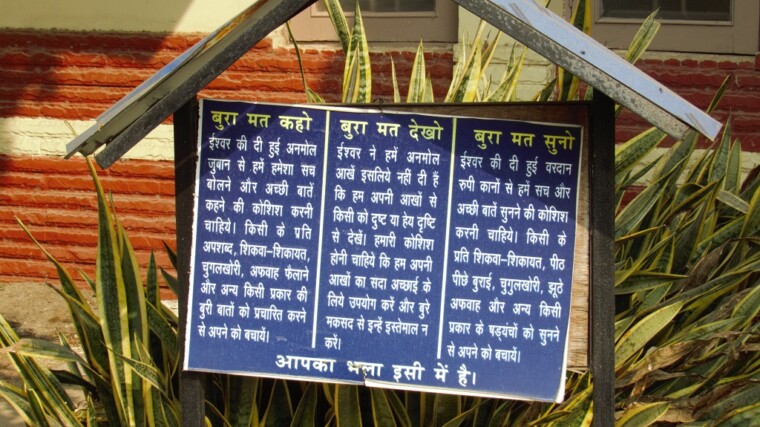 बुरा मत कहो
ईश्वर की दी हुई अनमोल
जुबान से हमें हमेशा सच
बोलने और अच्छी बातें
कहने की कोशिश करनी
चाहिये। किसी के प्रति
अपशब्द, शिकवा-शिकायत,
चुगलखोरी, अफवाह फैलाने
और अन्य किसी प्रकार की
बुरी बातों को प्रचारित करने
से अपने को बचायें।
बुरा मत देखो
ईश्वर ने हमें अनमोल
आखें इसलिये नहीं दी हैं
कि हम अपनी आखों से
किसी को दुष्ट या हेय दृष्टि
से देखें। हमारी कोशिश
होनी चाहिये कि हम अपनी
आखों का सदा अच्छाई के
लिये उपयोग करें और बुरे
मकसद से इन्हें इस्तेमाल न
करें।
बुरा मत सुनो
ईश्वर की दी हुई वरदान
रुपी कानों से हमें सच और
अच्छी बातें सुनने की कोशिश
करनी चाहिये। किसी के
प्रति शिकवा-शिकायत, पीठ
पीछे बुराई, चुगुलखोरी, झूठे
अफवाह और अन्य किसी
प्रकार के षड्यंत्रों को सुनने
से अपने को बचायें।
आपका भला इसी में है।